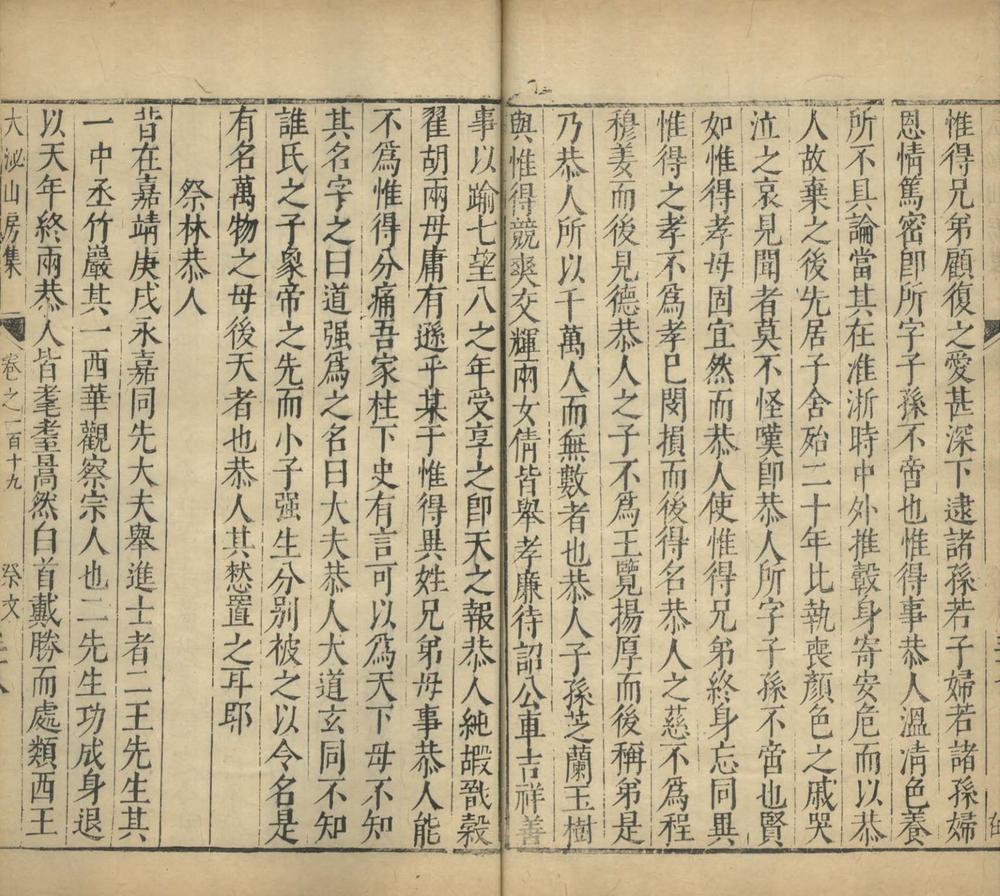 惟得兄弟顧復之愛甚深下逮諸孫若子婦若諸孫婦
恩情篤密卽所字子孫不啻也惟得事恭人溫凊色養
所不具論當其在淮浙時中外推轂身寄安危而以恭
人故棄之後先居子舍殆二十年比執喪顏色之戚哭
泣之哀見聞者莫不怪嘆卽恭人所字子孫不啻也賢
如惟得孝母固宜然而恭人使惟得兄弟終身忘同異
惟得之孝不爲孝巳閔損而後得名恭人之慈不爲程
穆姜而後見德恭人之子不爲王覽揚厚而後稱弟是
乃恭人所以千萬人而無數者也恭人子孫芝蘭玉樹
與惟得競爽交輝兩女倩皆舉孝廉待詔公車吉祥善
事以踰七望八之年受享之卽天之報恭人純嘏戩穀
翟胡兩母庸有遜乎某于惟得異姓兄弟母事恭人能
不爲惟得分痛吾家柱下史有言可以爲天下母不知
其名字之曰道强爲之名曰大夫恭人大道玄同不知
誰氏之子象帝之先而小子强生分别被之以令名是
有名萬物之母後天者也恭人其憗置之耳耶
祭林恭人
昔在嘉靖庚戌永嘉同先大夫舉進士者二王先生其
一中丞竹巖其一西華觀察宗人也二先生功成身退
以天年終兩恭人皆耄耋暠然白首戴勝而處類西王
大泌山房集 卷之一百十九 祭文